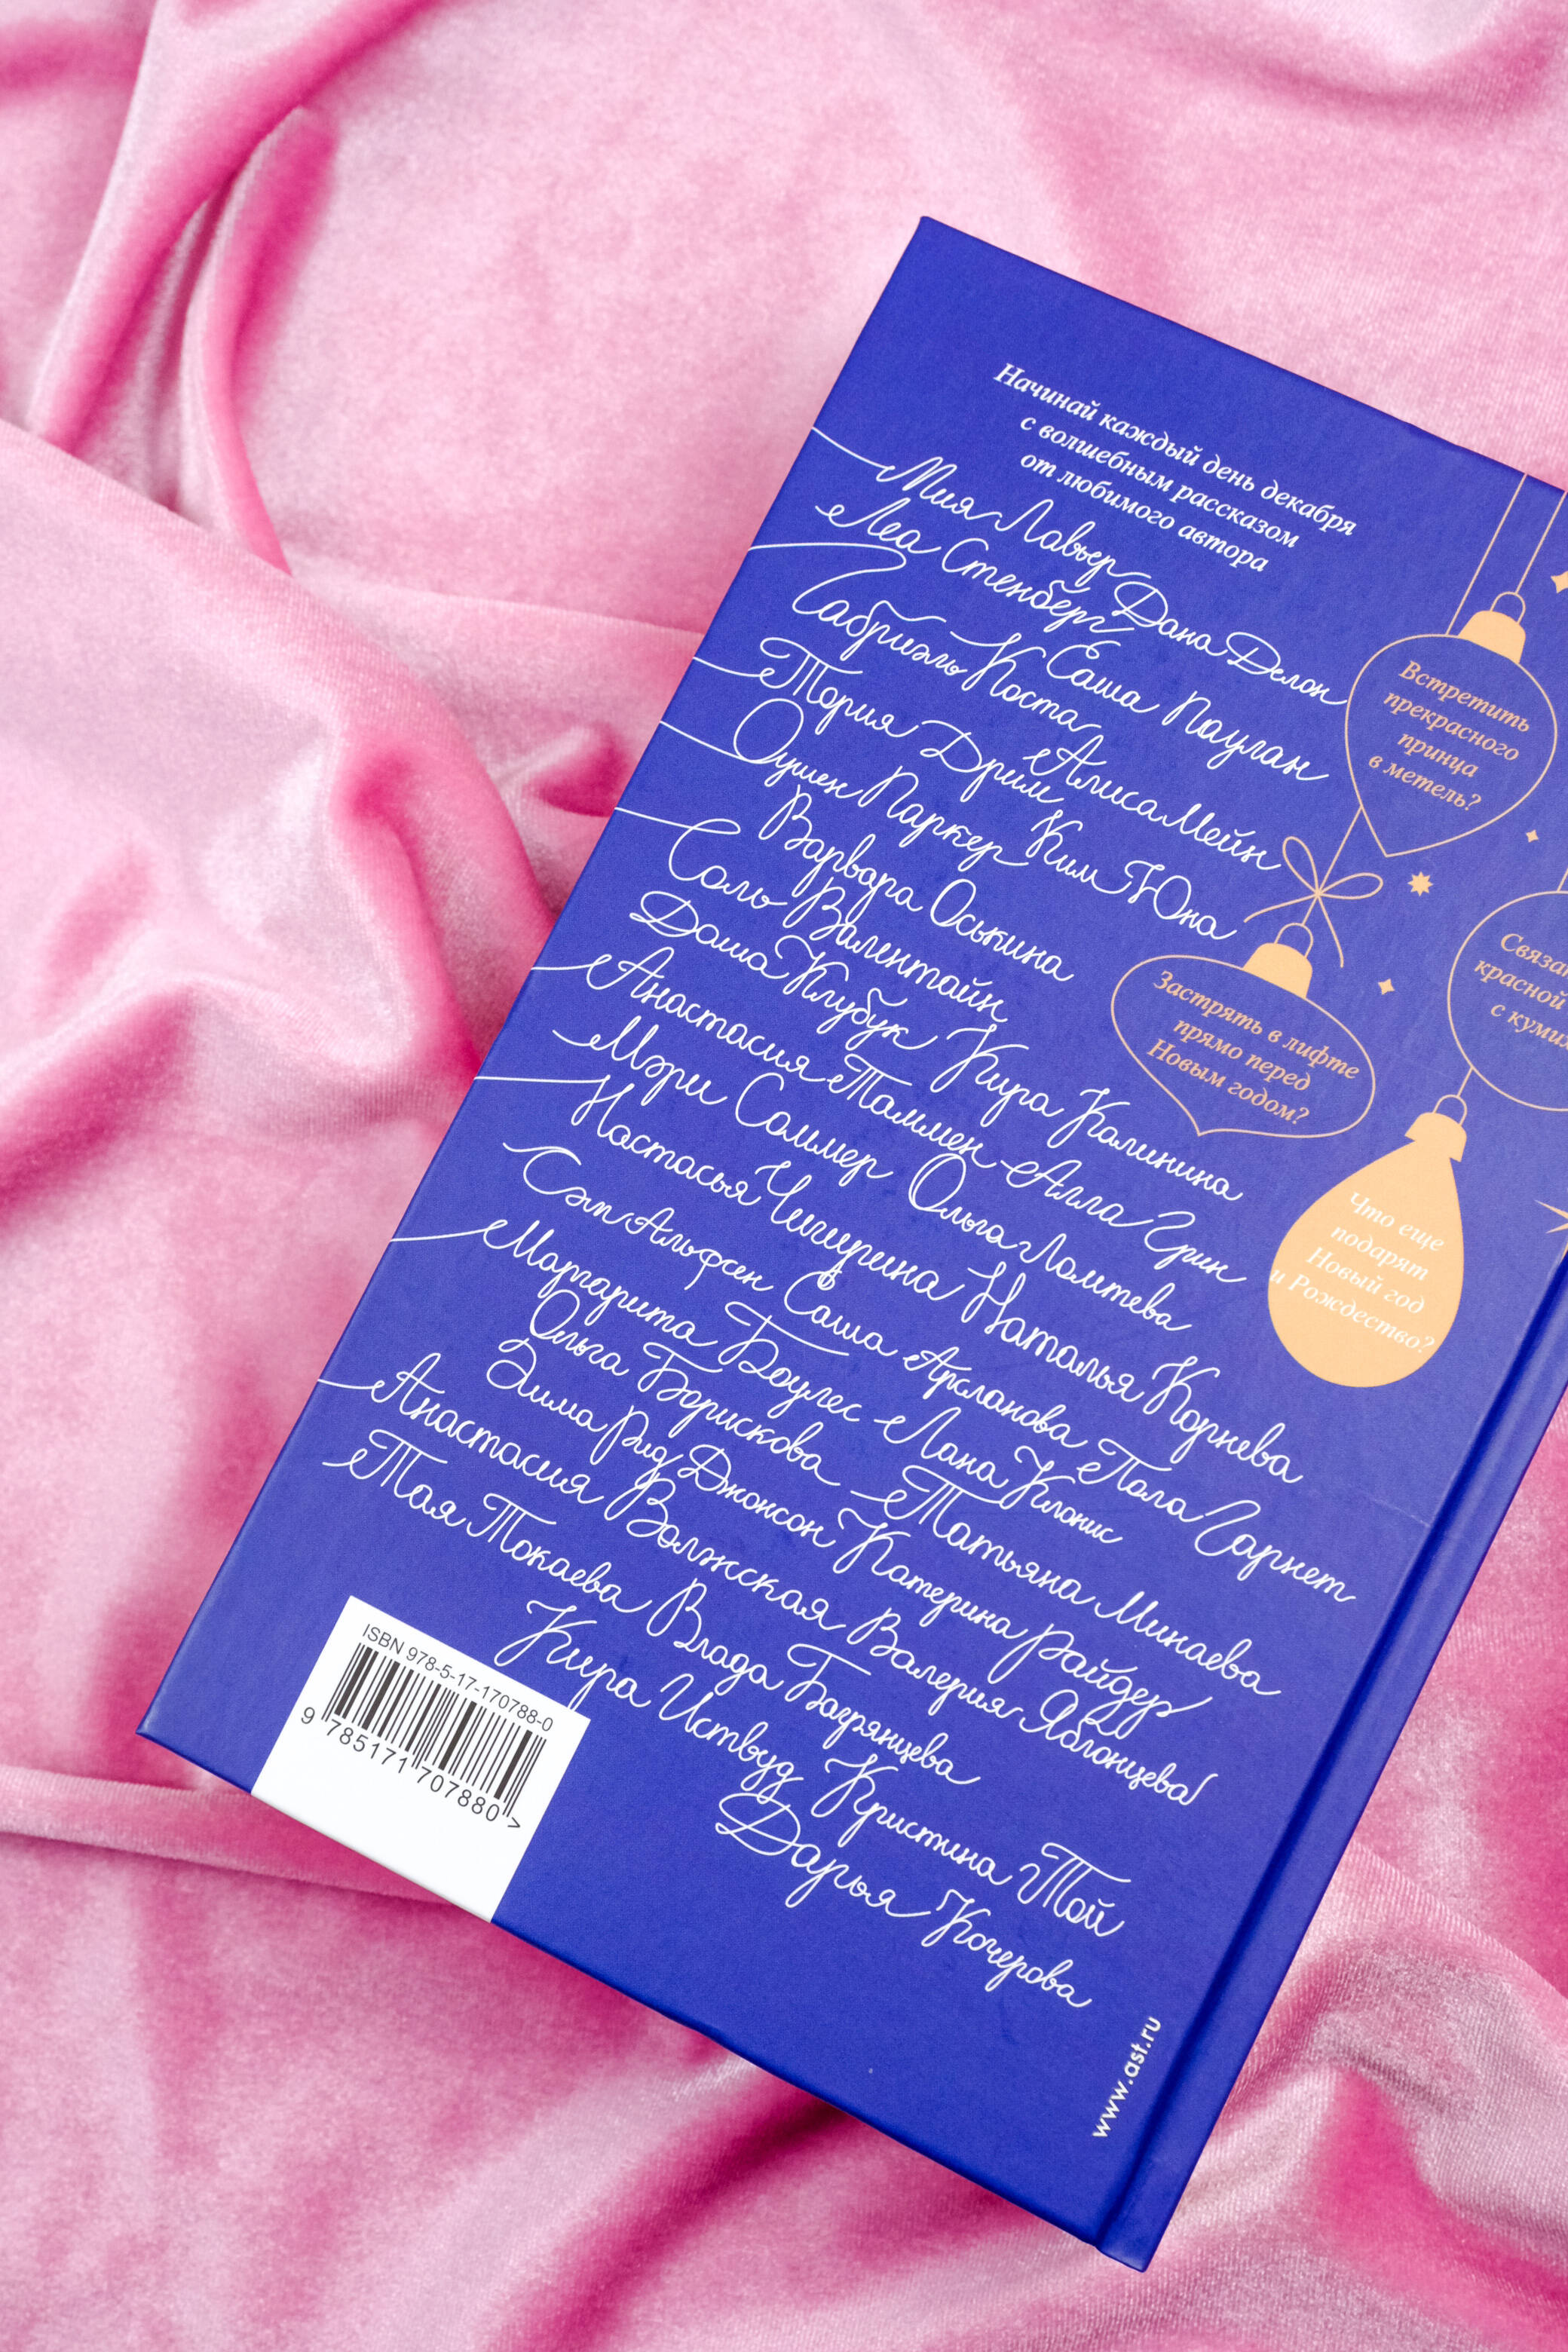 Начинай каждый день декабря
с волшебным рассказом
от любимого автора
Мия Лавьер Дана Делон
Леа Стенберг Саша Паулан
Габриэль Коста Алиса Мейн
Тория Дрим Ким Юна
Оушен Паркер
Варвара Оськина
Соль Валентайн
Даша Клубук Кира Калинина
Анастасия Таммен Алла Грин
Мэри Соммер Ольга Ломтева
Настасья Чигирина Наталья Корнева
Сэм Альфсен Саша Арсланова Пола Гарнет
Маргарита Боулес Лана Клонис
Ольга Борискова Татьяна Минаева
Эмма Рид Джонсон Катерина Райдер
Анастасия Волжская Валерия Яблонцева
Тая Токаева Влада Багрянцева
Кира Иствуд Кристина Той
Дарья Кочерова
Встретить
прекрасного
принца
в метель?
красной
Застрять в лифте
прямо перед
Новым годом?
Что еще
подарят
Новый год
и Рождество?
ISBN 978-5-17-170788-0
9 785171 707880 >
www.ast.ru